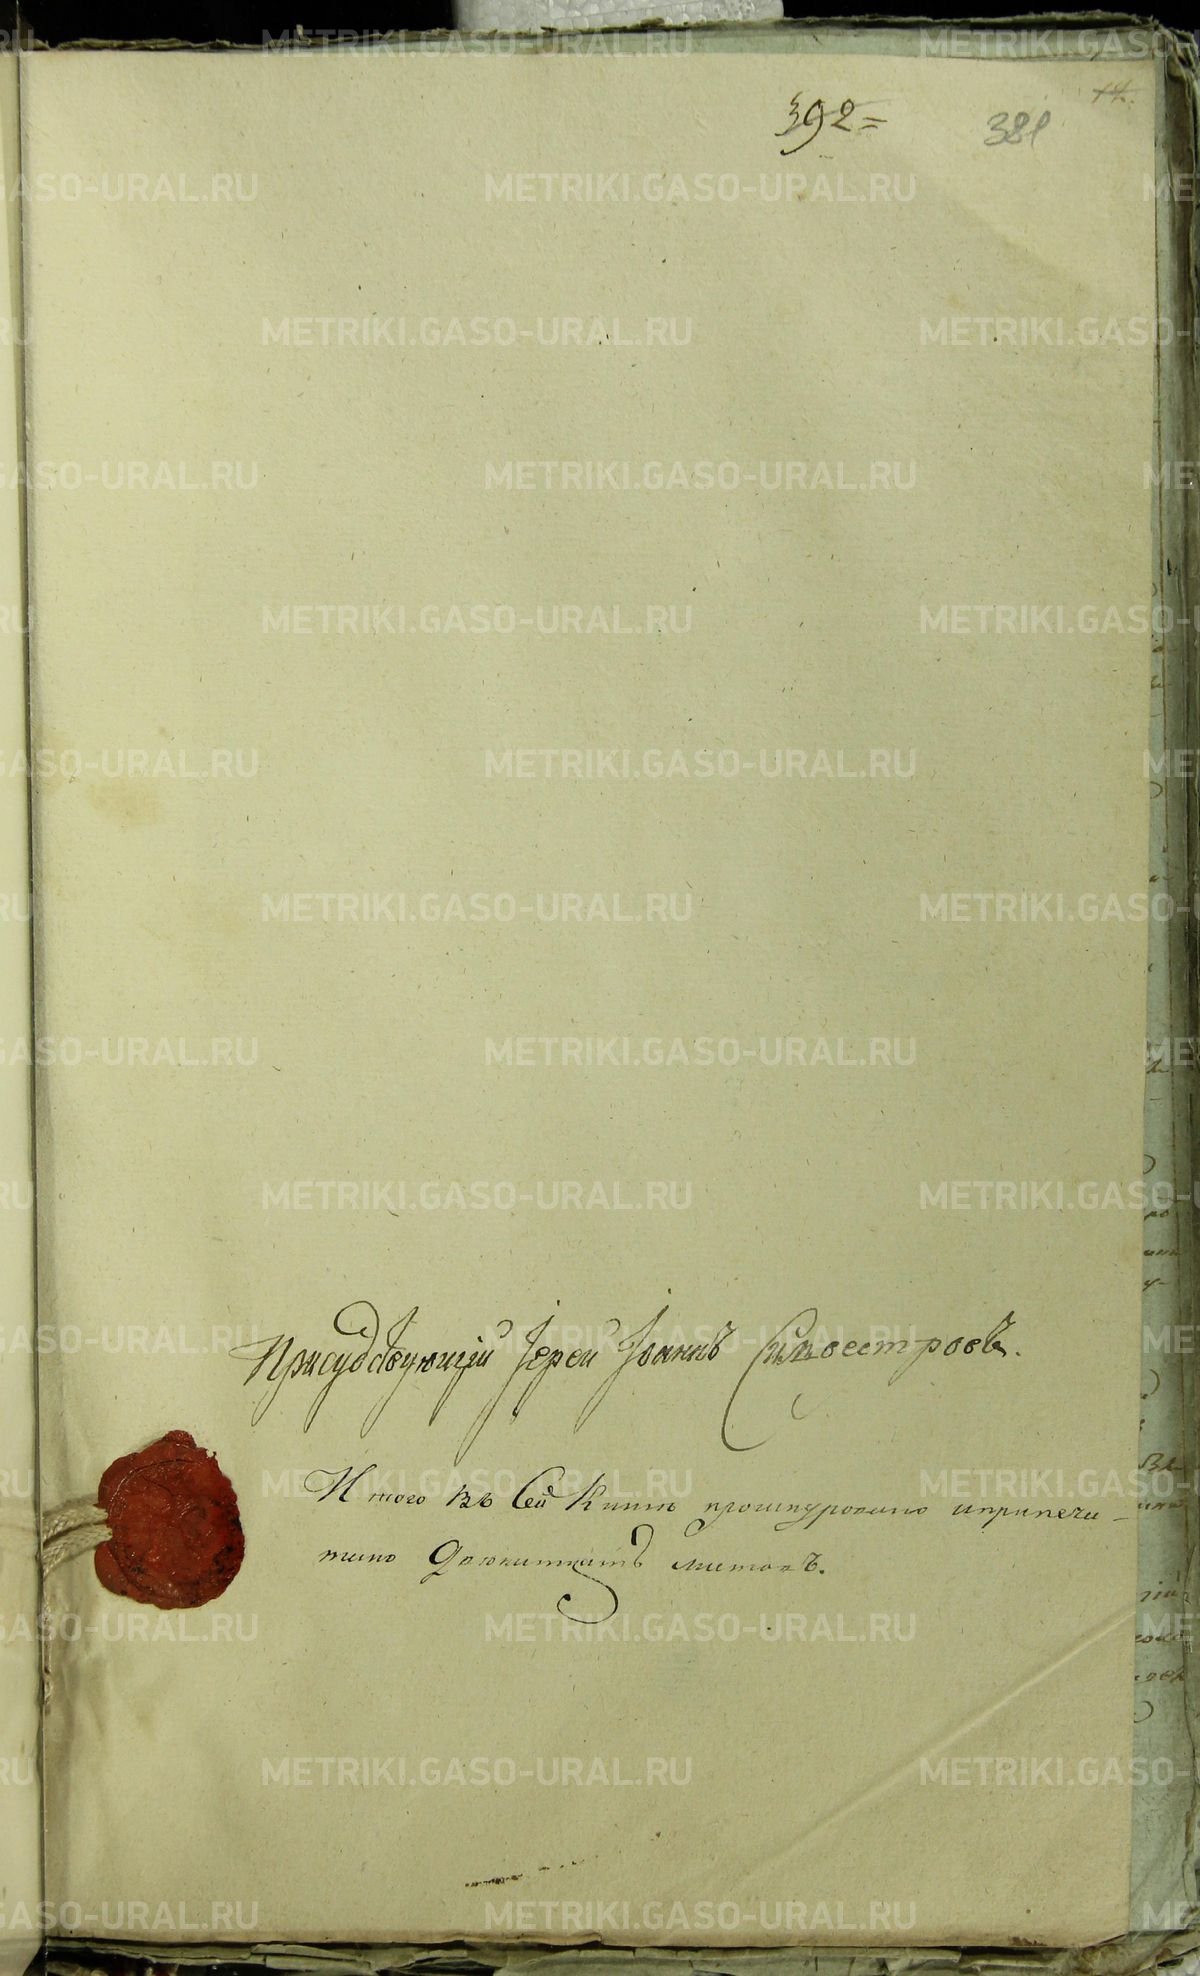 14.
392=
381
Присудствующій Іереи Іоаннъ Сильвестровъ.
Итого въ Сей Книгѣ прошнуровано иприпеча-
тано листовъ.
METRIKI.GASO-URAL.RU